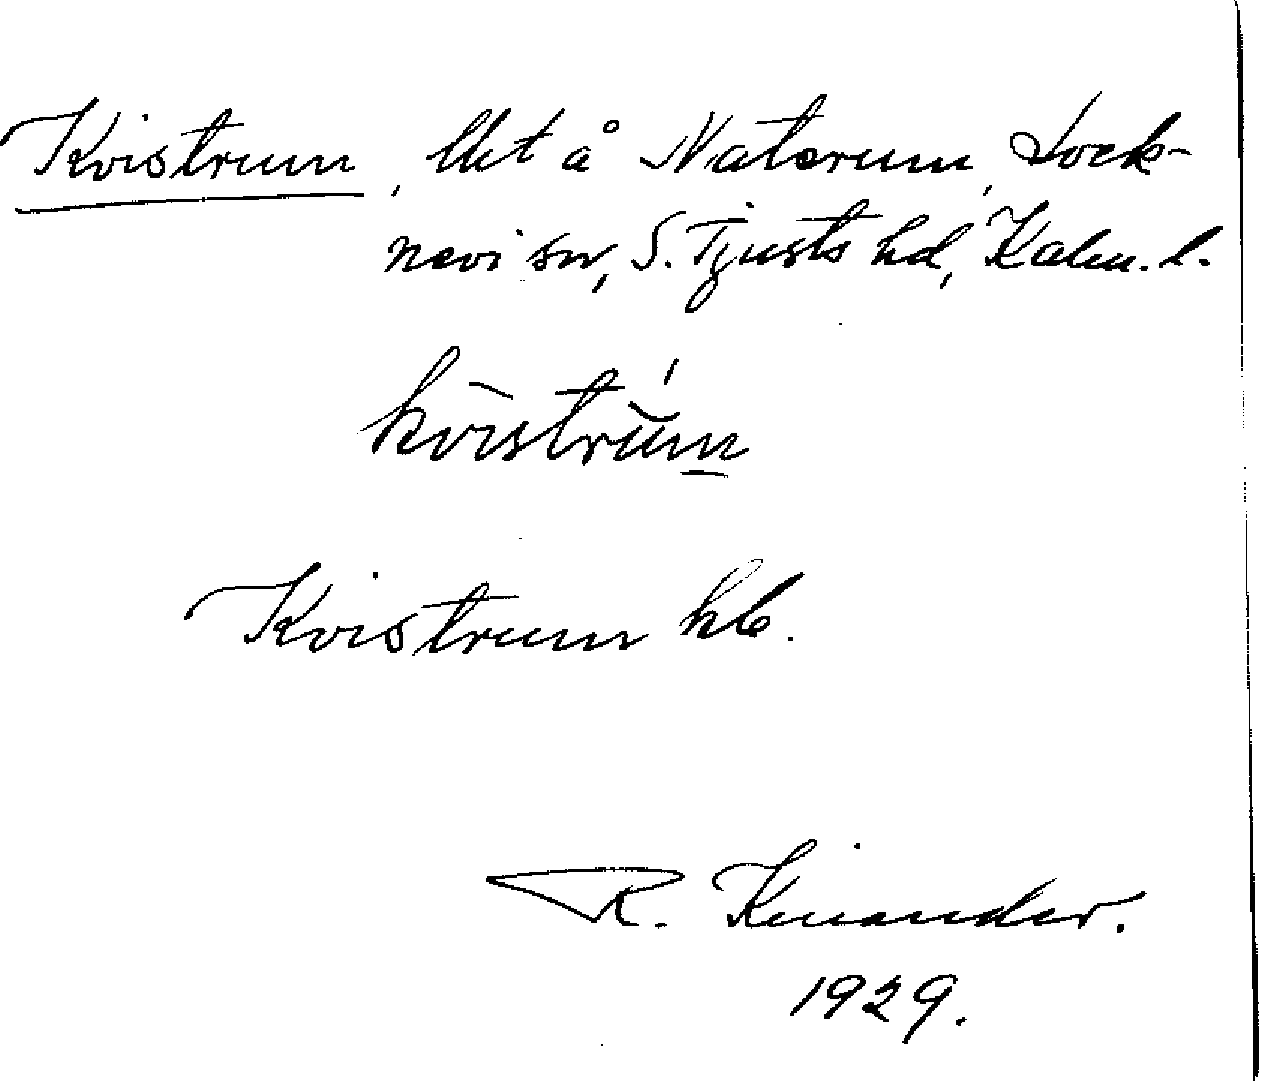 Kvistrum, lht å Naterum, Lock-
nevi sn, S. Tjusts hd, Kalm. l.
kvistrum
Kvistrum hb.
R. Kinander.
1929.